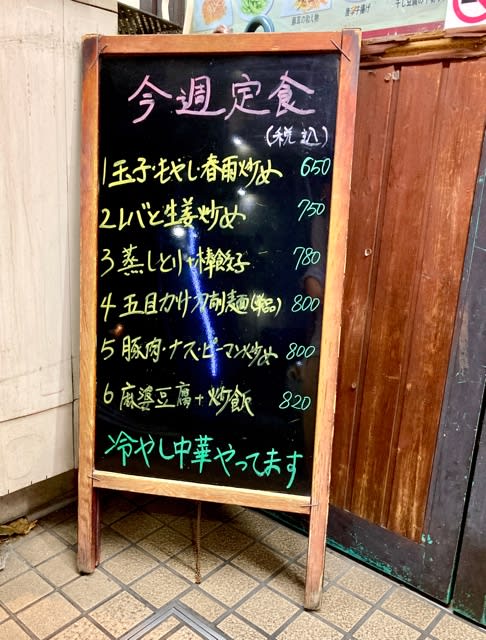 今週定食
(税込)
1 玉子・もやし・春雨炒め 650
2 レバと生姜炒め 750
3 蒸しとり+棒餃子 780
4 五目かけ刀削麺(単品) 800
5 豚肉・ナス・ピーマン炒め 800
6 麻婆豆腐+炒飯 820
冷やし中華やってます